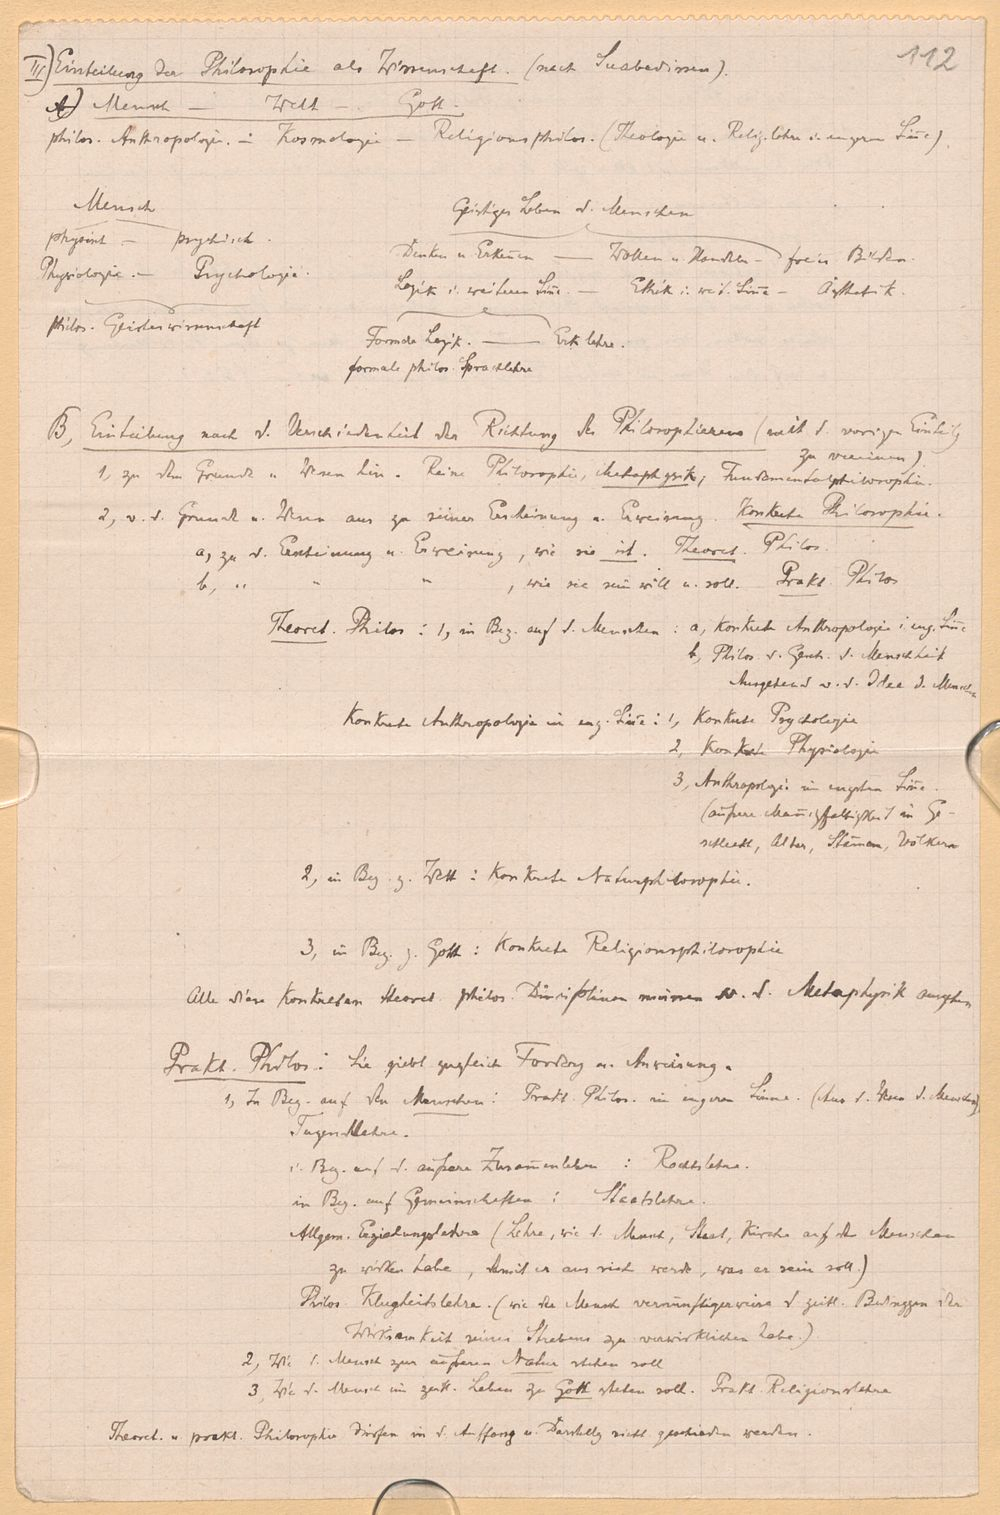 112
III) Einteilung der Philosophie als Wissenschaft. (nach Suabedissen).
A) Mensch — Welt — Gott.
philos. Anthropologie. — Kosmologie — Religionsphilos. (Theologie u. Relig.lehre i. engeren Sinne).
Mensch
physisch — psychisch.
Physiologie. — Psychologie.
philos. Geisteswissenschaft
Geistiges Leben d. Menschen
Denken u. Erkennen — Wollen u. Handeln — freies Bilden.
Logik i. weiteren Sinne. — Ethik i. weit. Sinne — Ästhetik.
Formale Logik. — Erk.lehre.
formale philos. Sprachlehre
B, Einteilung nach d. Verschiedenheit der Richtung des Philosophierens (mit d. vorigen Einteilg
zu vereinen).
1, zu dem Grunde u. Wesen hin. Reine Philosophie, Metaphysik, Fundamentalphilosophie.
2, v. d. Grunde u. Wesen aus zu seiner Erscheinung u. Erweisung. Konkrete Philosophie.
a, zu d. Erscheinung u. Erweisung, wie sie ist. Theoret. Philos.
b, " " " , wie sie sein will u. soll. Prakt. Philos
Theoret. Philos: 1, in Bez. auf d. Menschen: a, Konkrete Anthropologie i. eng. Sinne
b, Philos. d. Gesch. d. Menschheit
Ausgehend v. d. Idee d. Menschen
Konkrete Anthropologie im eng. Sinne: 1, Konkrete Psychologie
2, Konkrete Physiologie
3, Anthropologie im engsten Sinne.
(äußere Mannigfaltigkeit in Ge-
schlecht, Alter, Stämmen, Völkern
2, in Bez. z. Welt: Konkrete Naturphilosophie.
3, in Bez. z. Gott: Konkrete Religionsphilosophie
Alle diese Konkreten theoret. philos. Disziplinen müssen v. d. Metaphysik ausgehen
Prakt. Philos: Sie giebt zugleich Forderg u. Anweisung.
1, In Bez. auf den Menschen: Prakt. Philos. im engeren Sinne. (Aus d. Wesen d. Menschen)
Tugendlehre.
i. Bez. auf d. äußere Zusammenleben: Rechtslehre.
in Bez. auf Gemeinschaften: Staatslehre.
Allgem. Erziehungslehre (Lehre, wie d. Mensch, Staat, Kirche auf den Menschen
zu wirken habe, damit er aus sich werde, was er sein soll.)
Philos. Klugheitslehre. (wie der Mensch vernünftigerweise d. zeitl. Bedinggen der
Wirksamkeit seines Strebens zu verwirklichen habe.)
2, Wie d. Mensch zur äußeren Natur stehen soll
3, Wie d. Mensch im zeitl. Leben zu Gott stehen soll. Prakt. Religionslehre
Theoret. u. prakt. Philosophie dürfen in d. Auffassg u. Darstellg nicht geschieden werden.